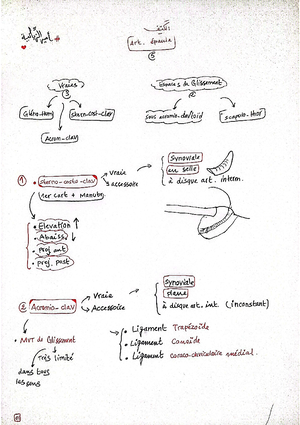 الكتف
art. épaule
⑤
Vraies
③
Espaces de Glissement
②
Gléno-Hum
Sterno-cost-clav
Acrom-clav
sous acromio-deltoïd
scapulo-thor
① • Sterno-costo-clav
Vraie
accessoire
Synoviale
en selle
à disque art. interm.
1er cart + Manubr
• Elevation ↑
• Abaiss ↓
• Proj ant
• Proj. post
② Acromio-clav
Vraie
Accessoire
Synoviale
plane
à disque art. int. (inconstant)
• MVT de Glissement
très limité
dans tous
les sens
• Ligament Trapézoïde
• Ligament Conoïde
• Ligament coraco-claviculaire médial.